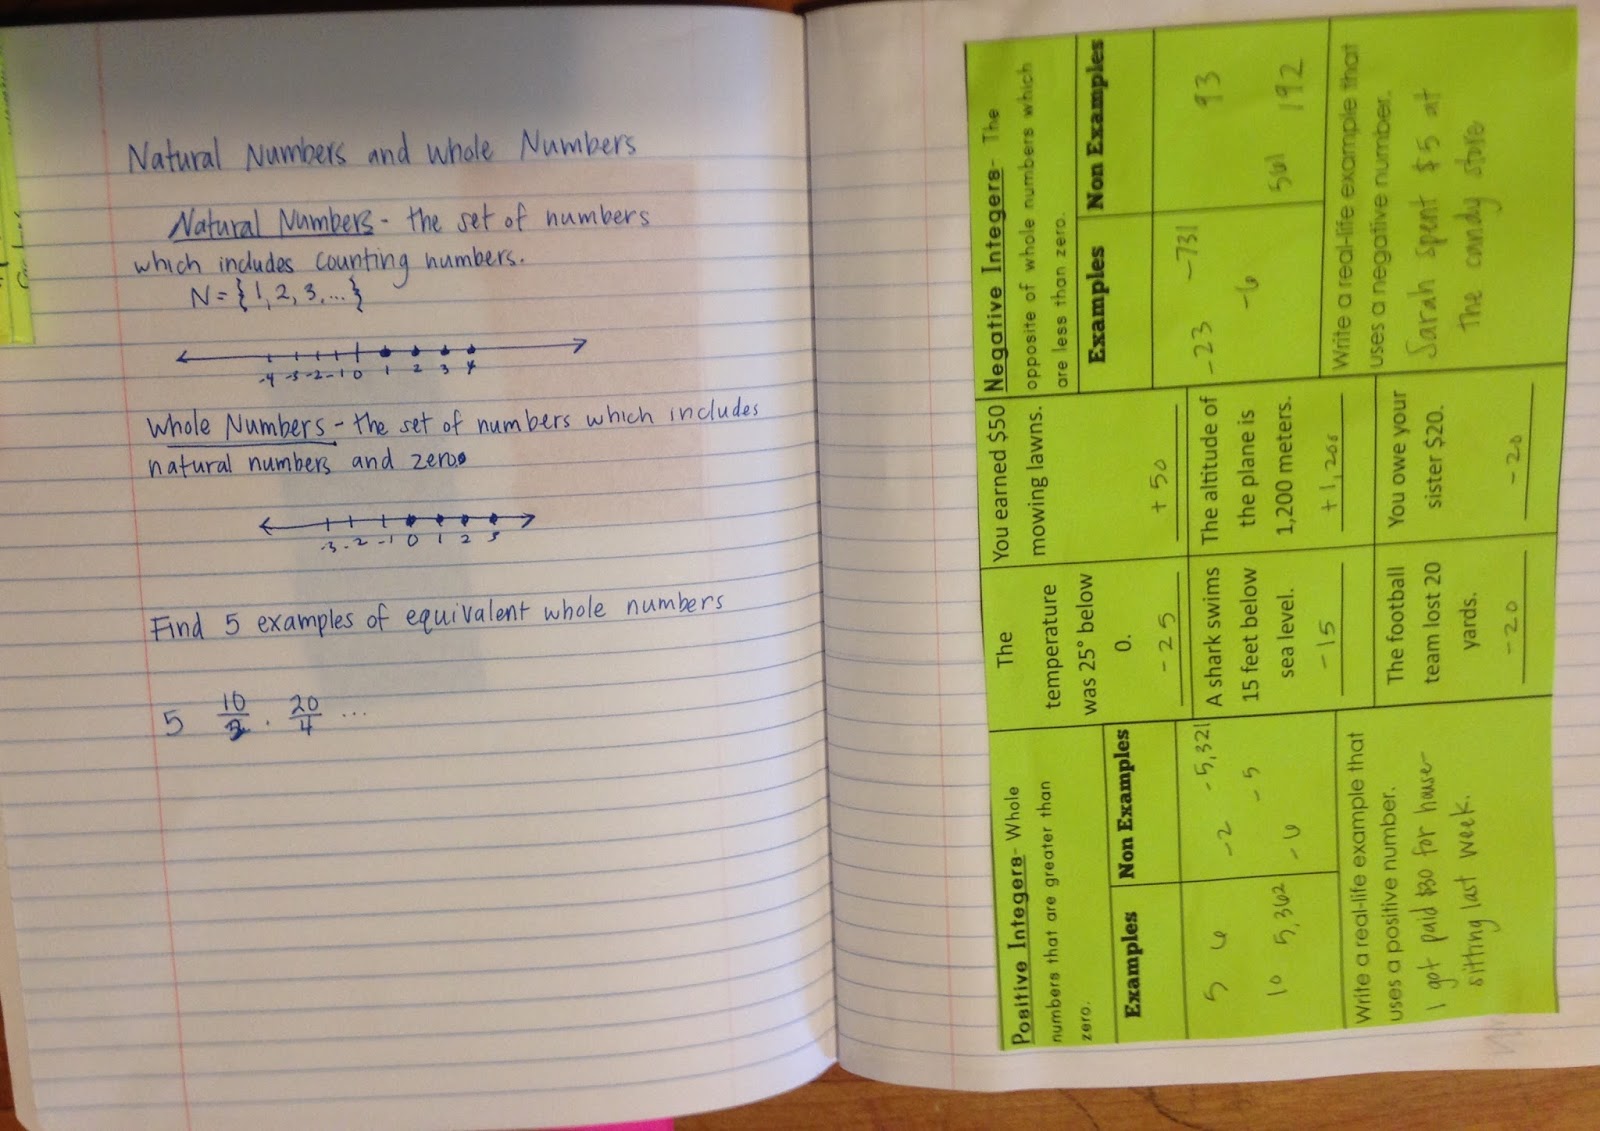 Natural Numbers and Whole Numbers
Natural Numbers - the set of numbers
which includes counting numbers.
N = {1, 2, 3, ...}
-4 -3 -2 -1 0 1 2 3 4
Whole Numbers - the set of numbers which includes
natural numbers and zero.
-3 -2 -1 0 1 2 3
Find 5 examples of equivalent whole numbers
5 10/2 . 20/4 ...
Positive Integers- Whole
numbers that are greater than
zero.
Examples
Non Examples
5 6
10 5,362
-2 -5,321
-6 -5
Write a real-life example that
uses a positive number.
I got paid $30 for house-
sitting last week.
The
temperature
was 25° below
0.
-25
You earned $50
mowing lawns.
+50
A shark swims
15 feet below
sea level.
-15
The altitude of
the plane is
1,200 meters.
+1,200
The football
team lost 20
yards.
-20
You owe your
sister $20.
-20
Negative Integers- The
opposite of whole numbers which
are less than zero.
Examples
Non Examples
-23 -731
-6
93
561 192
Write a real-life example that
uses a negative number.
Sarah spent $5 at
the candy store